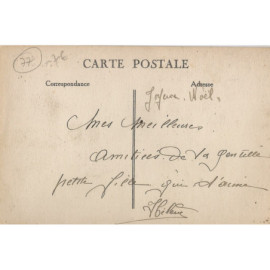 77
CARTE POSTALE
Correspondance
Adresse
Joyeux Noël.
Mes Meilleures
amitiées de la gentille
petite fille qui t'aime
Hélène